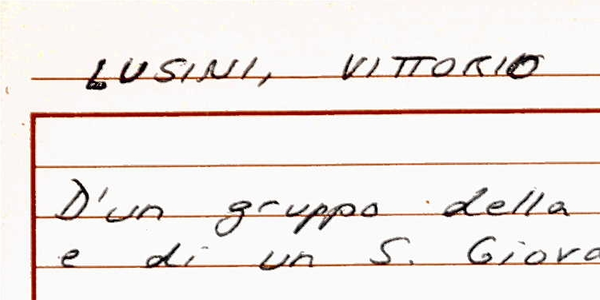 LUSINI, VITTORIO
D'un gruppo della
e di un S. Giova